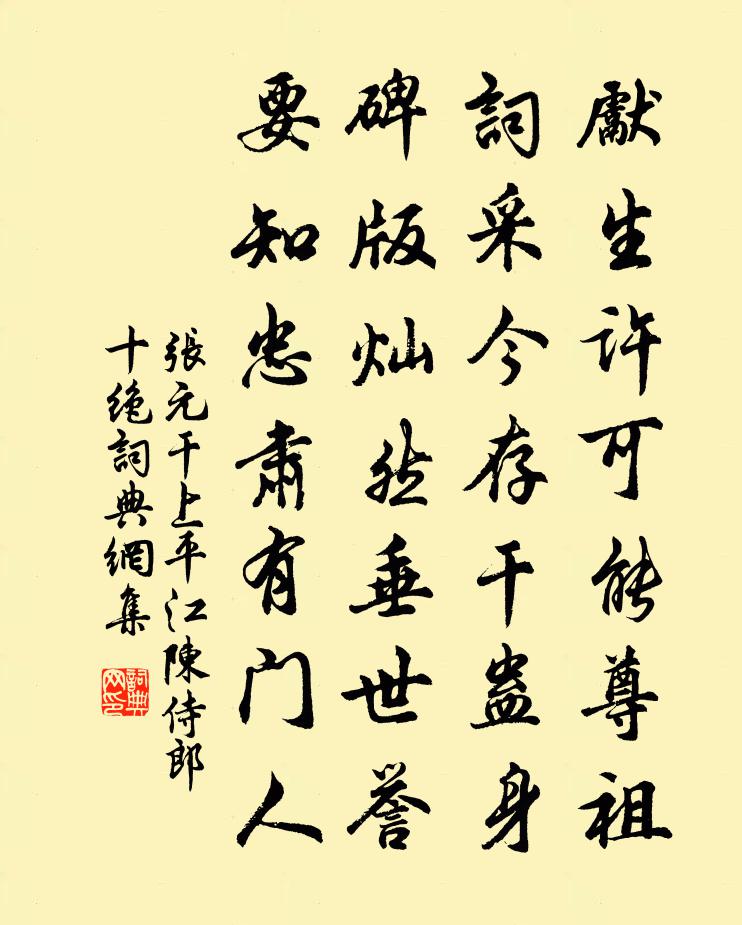 獻生許可能尊祖
詞采今存干蠱身
碑版灿然垂世譽
要知忠肅有門人
張元干上平江陳侍郎
十绝詞典網集
詞典网印